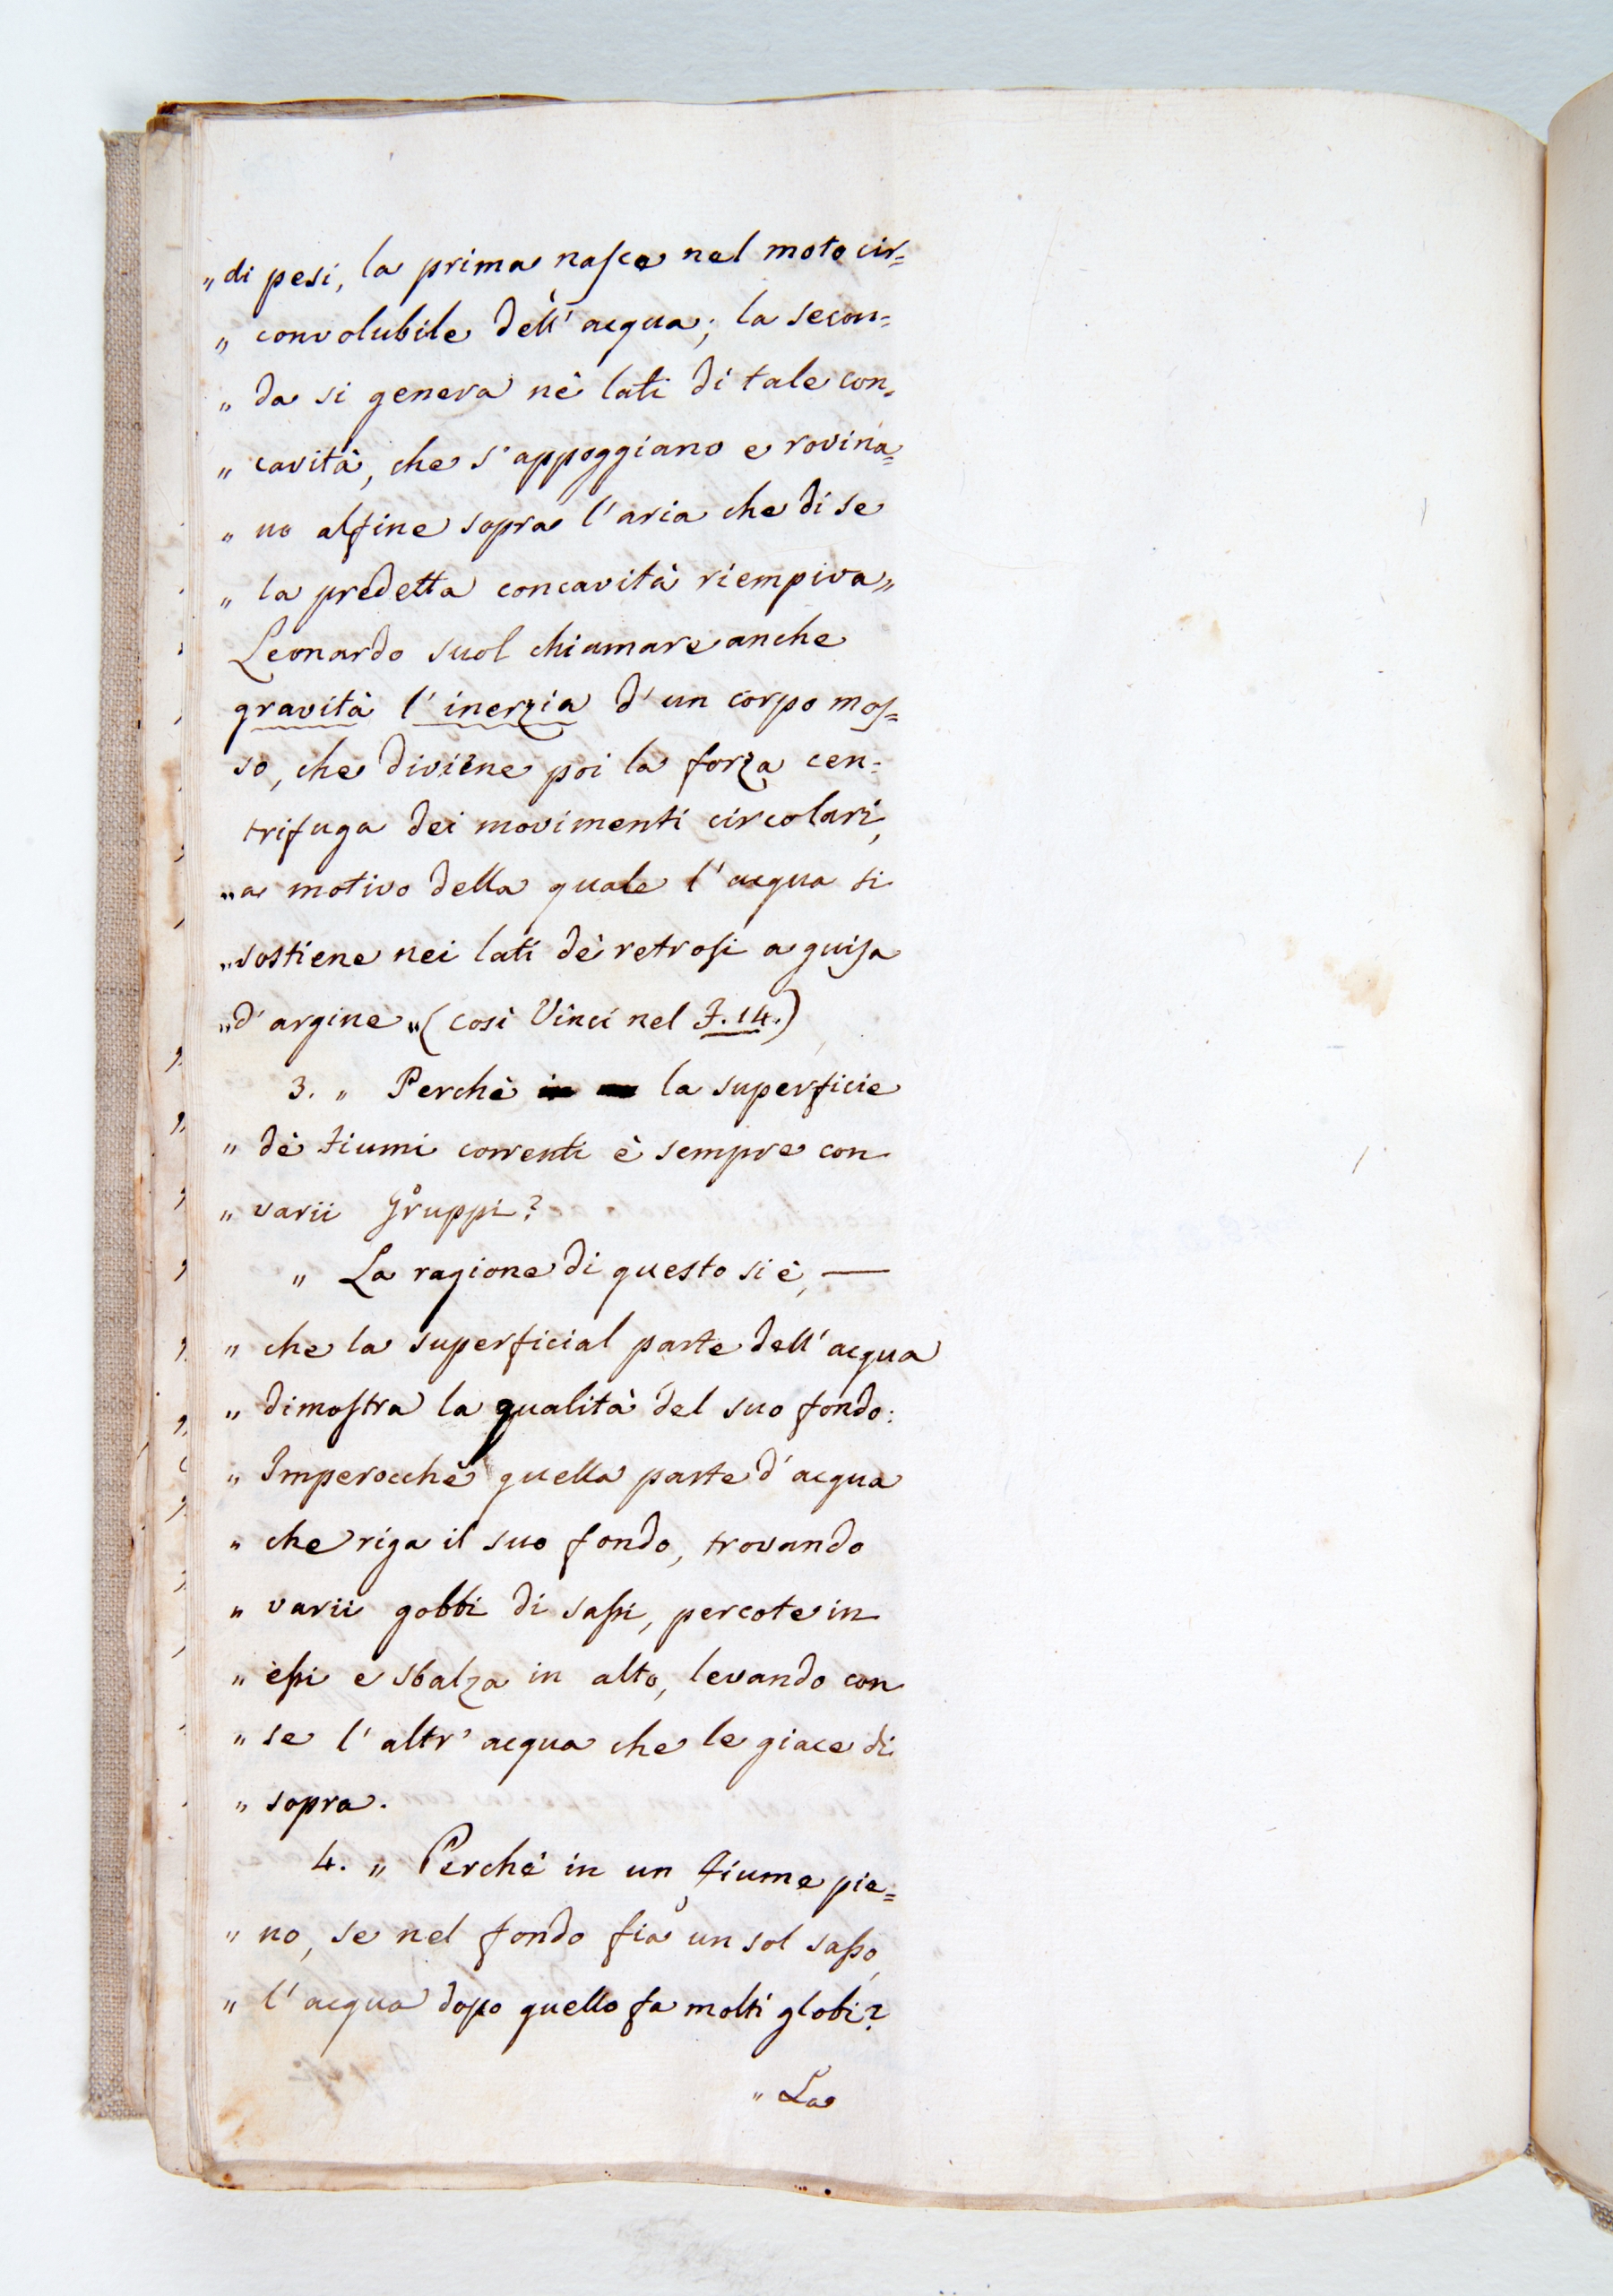 „ di pesi, la prima nasce nel moto cir=
„ convolubile dell' acqua; la secon=
„ da si genera nè lati di tale con=
„ cavità, che s' appoggiano e rovina=
„ no alfine sopra l'aria che di se
„ la predetta concavità riempiva „
Leonardo suol chiamare anche
gravità l' inerzia d' un corpo mos=
so, che diviene poi la forza cen=
trifuga dei movimenti circolari,
„ a motivo della quale l' acqua si
„ sostiene nei lati dè retrosi a guisa
„ d' argine „ (così Vinci nel F. 14.)
3. „ Perchè la superficie
„ dè Fiumi correnti è sempre con
„ varii Gruppi?
„ La ragione di questo si è, —
„ che la superficial parte dell' acqua
„ dimostra la qualità del suo fondo:
„ Imperocchè quella parte d' acqua
„ che riga il suo fondo, trovando
„ varii gobbi di sassi, percote in
„ essi e sbalza in alto, levando con
„ se l' altr' acqua che le giace di
„ sopra.
4. „ Perchè in un fiume pie=
„ no, se nel fondo fia un sol sasso,
„ l' acqua dopo quello fa molti globi?
„ La